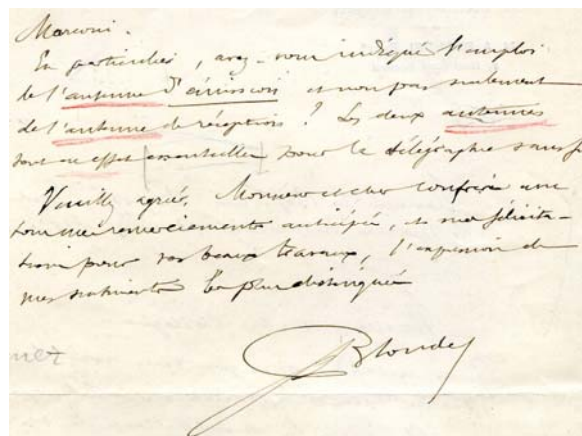 Marconi.
En particulier, avez-vous indiqué l'emploi
de l'antenne d'émission et non pas seulement
de l'antenne de réception ? Les deux antennes
sont en effet essentielles pour la télégraphie sans f
Veuillez agréer, Monsieur et cher Confrère avec
tous mes remerciements anticipés, et mes félicita-
tions pour vos beaux travaux, l'expression de
mes sentiments les plus distingués
Blondel